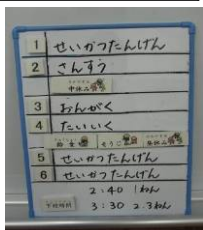 1 せいかつたんげん
2 さんすう
中休み
3 おんがく
4 たいいく
給食 そうじ 昼休み
5 せいかつたんげん
6 せいかつたんげん
2:40 1ねん
下校時刻 3:30 2.3ねん